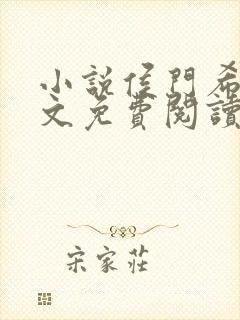 小說侯門希
文免費閱讀
宋家莊